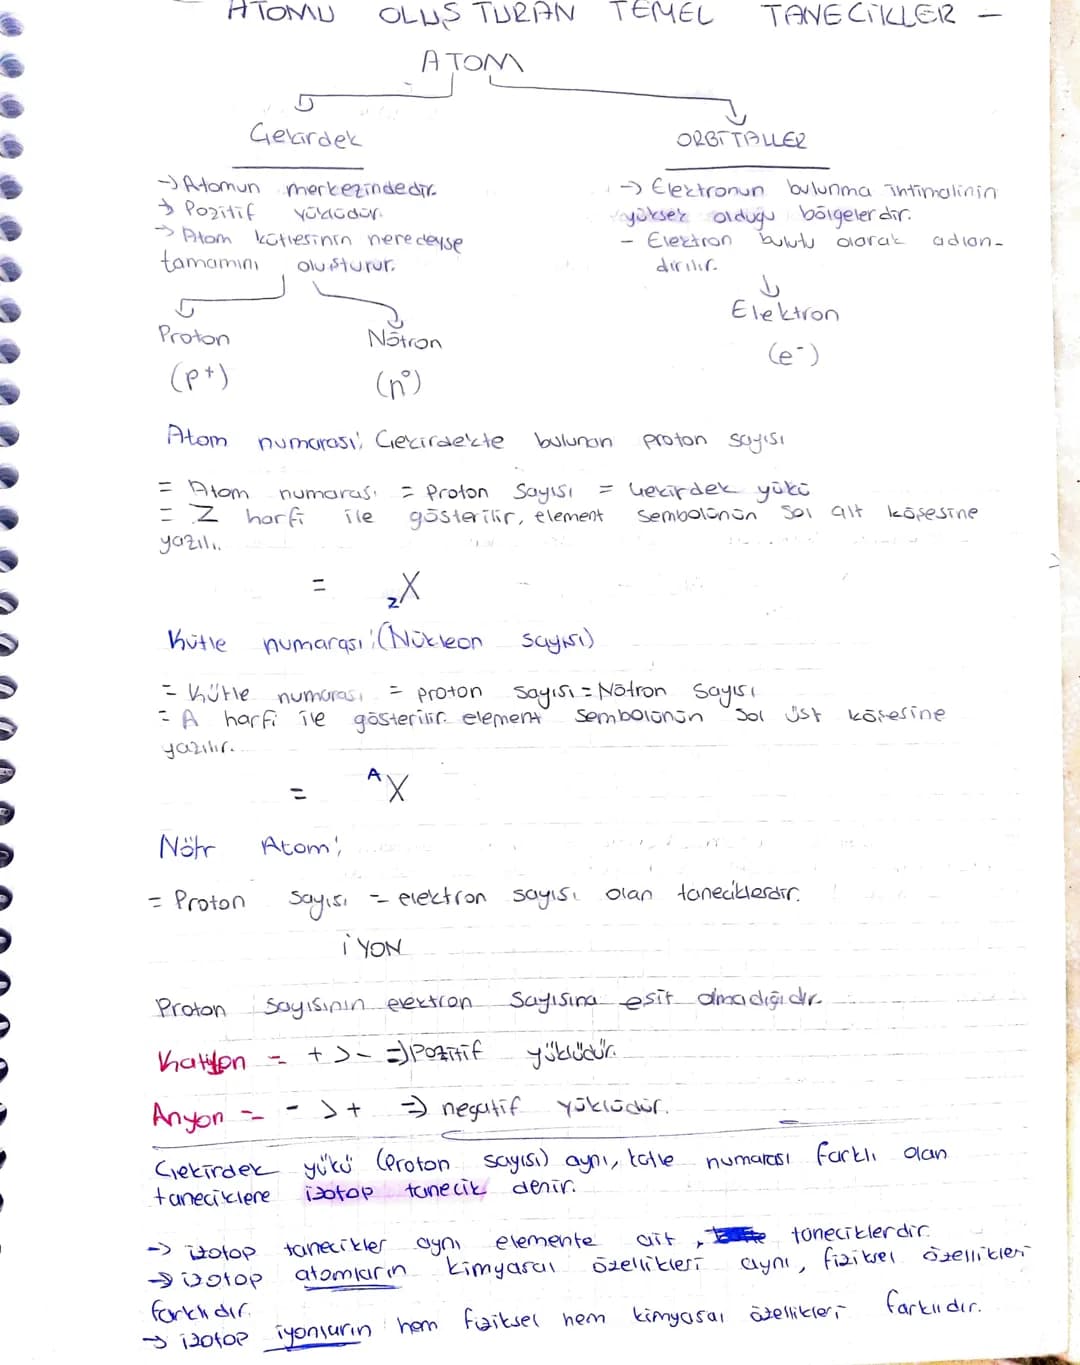 ATOMU OLUŞTURAN TEMEL TANECİKLER -
ATOM
Çekirdek
ORBİTALLER
-> Atomun merkezindedir.
-> Pozitif yüklüdür.
-> Atom kütlesinin neredeyse
tamamını oluşturur.
-> Elektronun bulunma ihtimalinin
yüksek olduğu bölgelerdir.
- Elektron bulutu olarak adlan-
dırılır.
Proton
(p+)
Nötron
(n°)
Elektron
(e-)
Atom numarası; Çekirdekte bulunan proton sayısı
= Atom numarası = Proton Sayısı = Çekirdek yükü
= Z harfi ile gösterilir, element sembolünün sol alt köşesine
yazılı..
= zX
Kütle numarası; (Nükleon sayısı)
= Kütle numarası = proton sayısı = Nötron sayısı
= A harfi ile gösterilir. element sembolünün sol üst köşesine
yazılır.
= ᴬX
Nötr Atom;
= Proton sayısı = elektron sayısı olan taneciklerdir.
İYON
Proton sayısının elektron sayısına eşit olmadığıdır.
Katyon = + > - => Pozitif yüklüdür.
Anyon = - > + => negatif yüklüdür.
Çekirdek yükü (Proton sayısı) aynı, kütle numarası farklı olan
taneciklere izotop tanecik denir.
-> izotop tanecikler aynı elemente ait, taneciklerdir.
-> izotop atomların kimyasal özellikleri aynı, fiziksel özellikleri
farklıdır.
-> izotop iyonların hem fiziksel hem kimyasal özellikleri farklıdır.